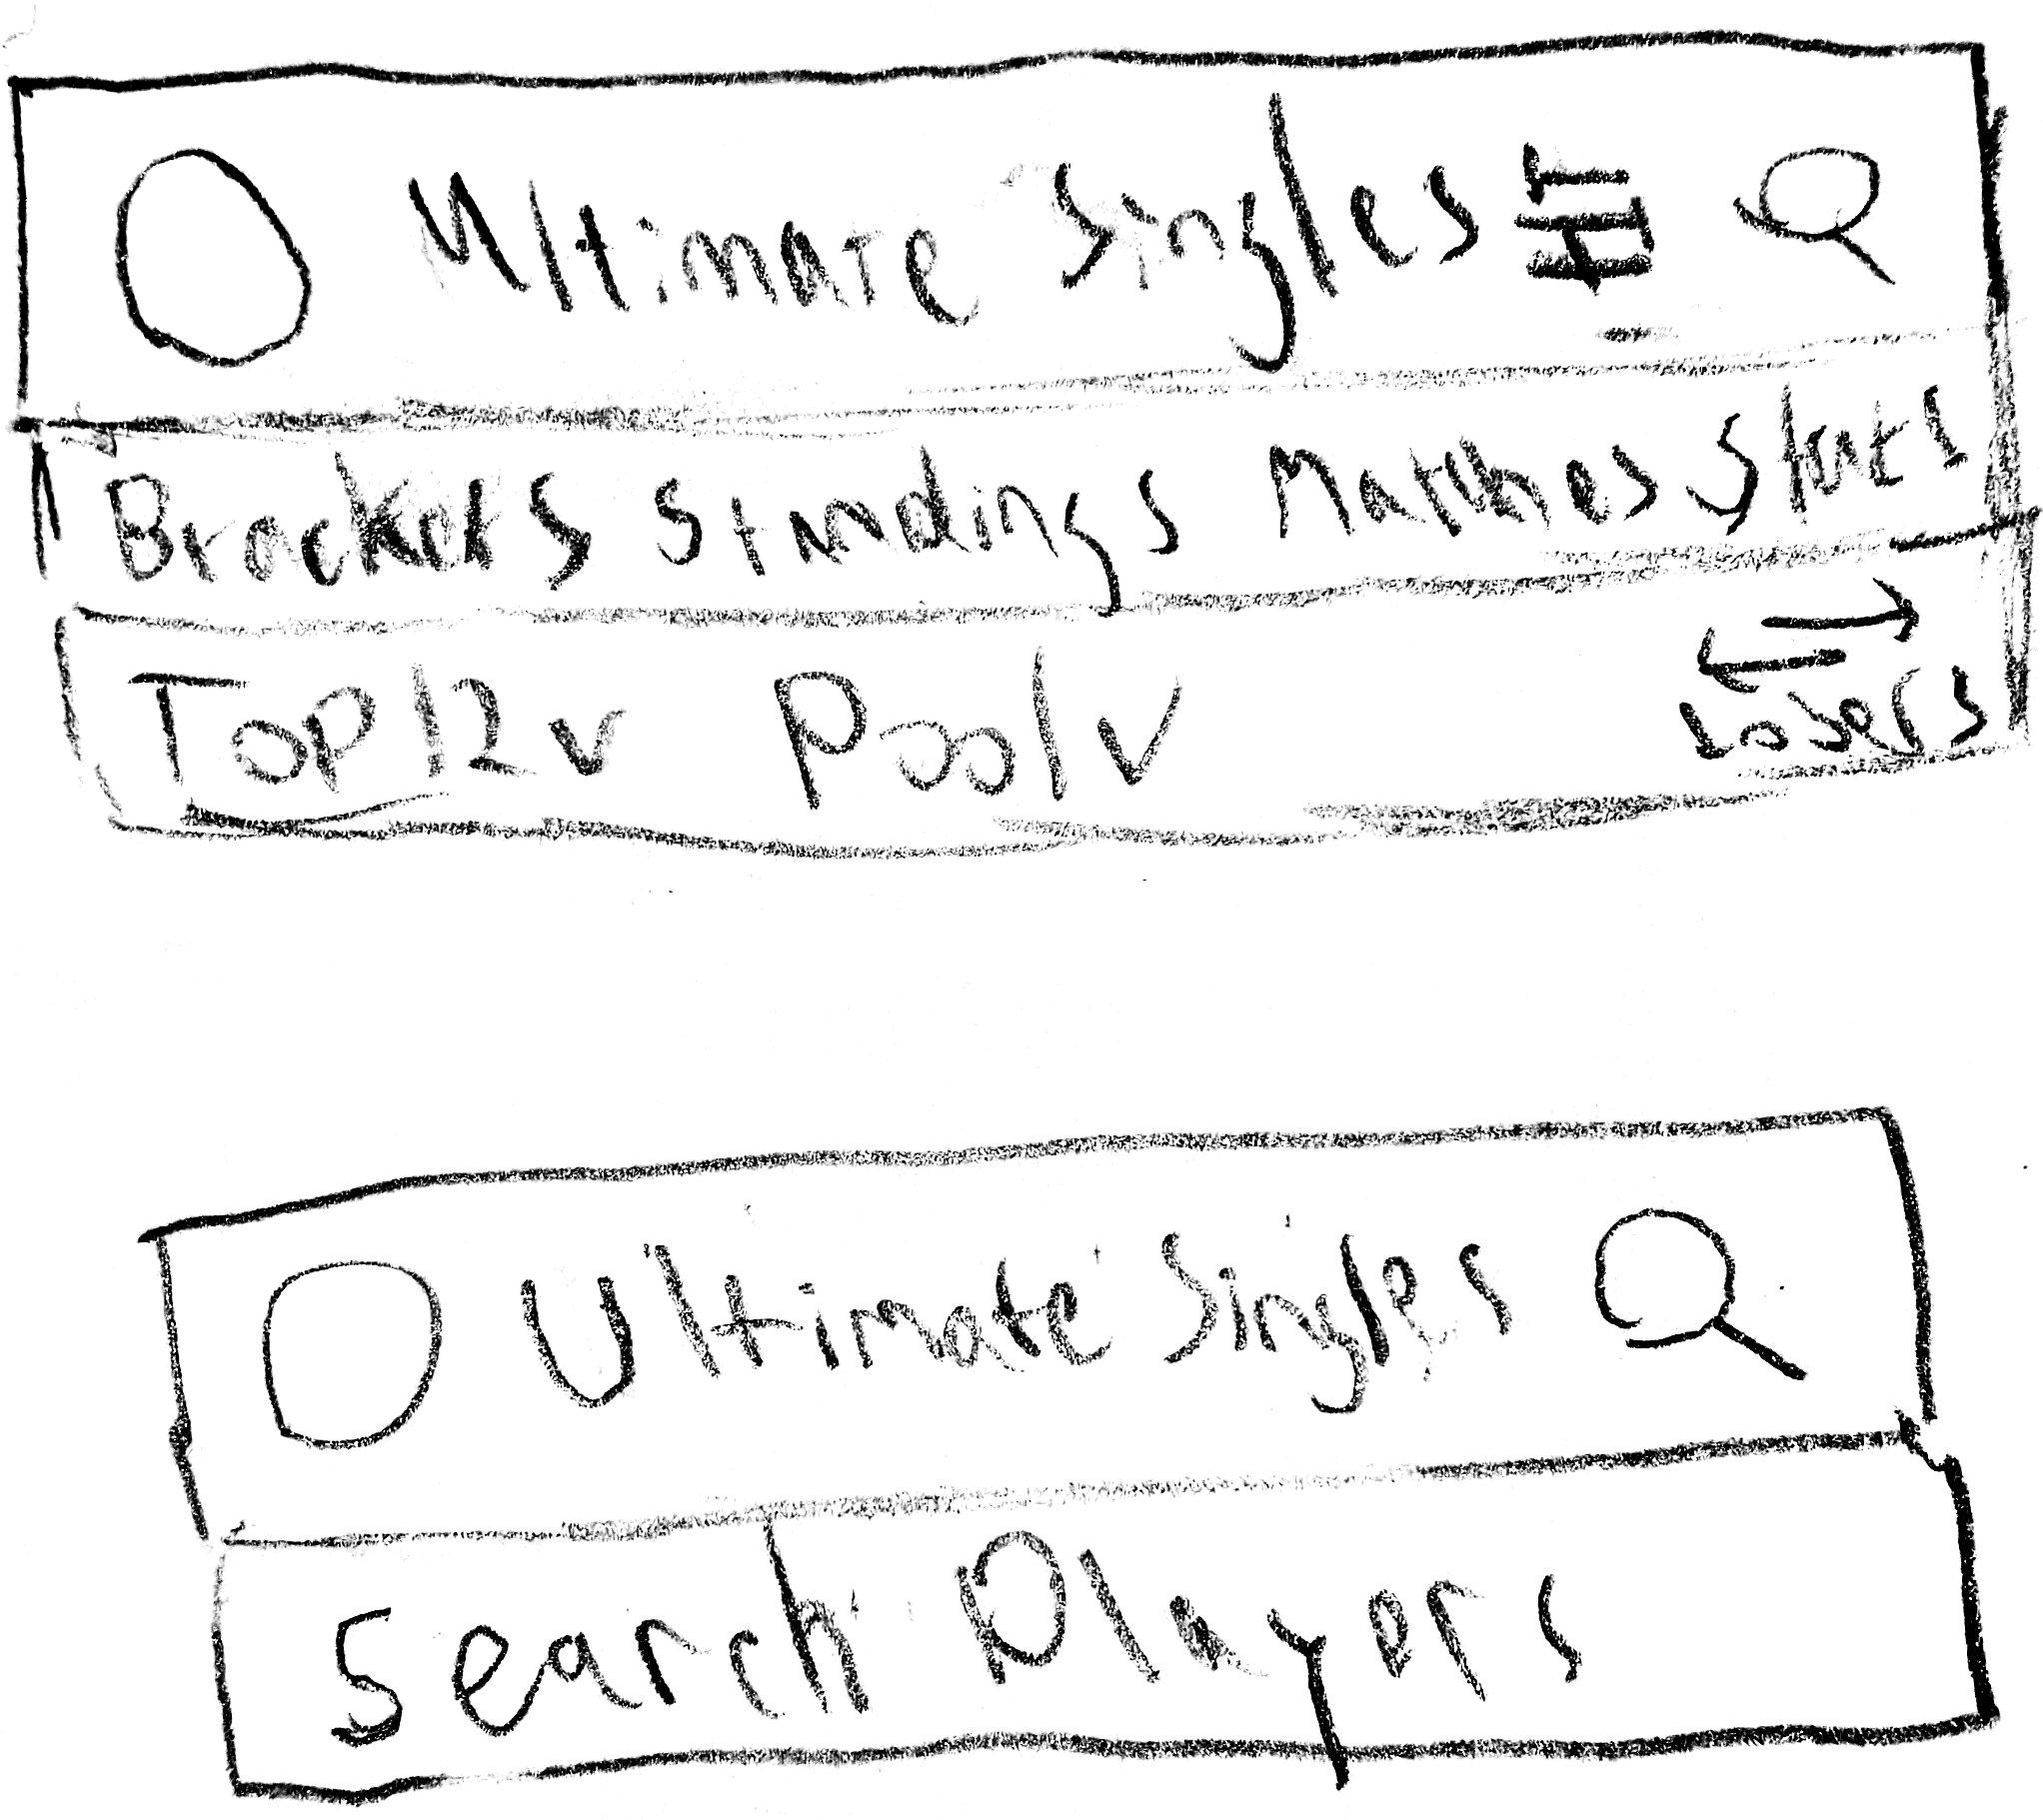 Ultimate Singles
Brackets Standings Matches Stats
Top 12 v Pool v
Losers
Ultimate Singles
Search Players